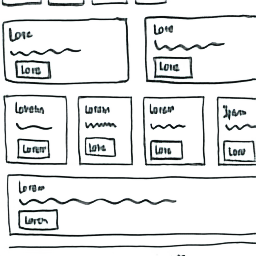 Lore
Lore
Lore
Lore
Lorem
Lorem
Lorem
Lorem
Lore
Lore
Lorem
Lorem